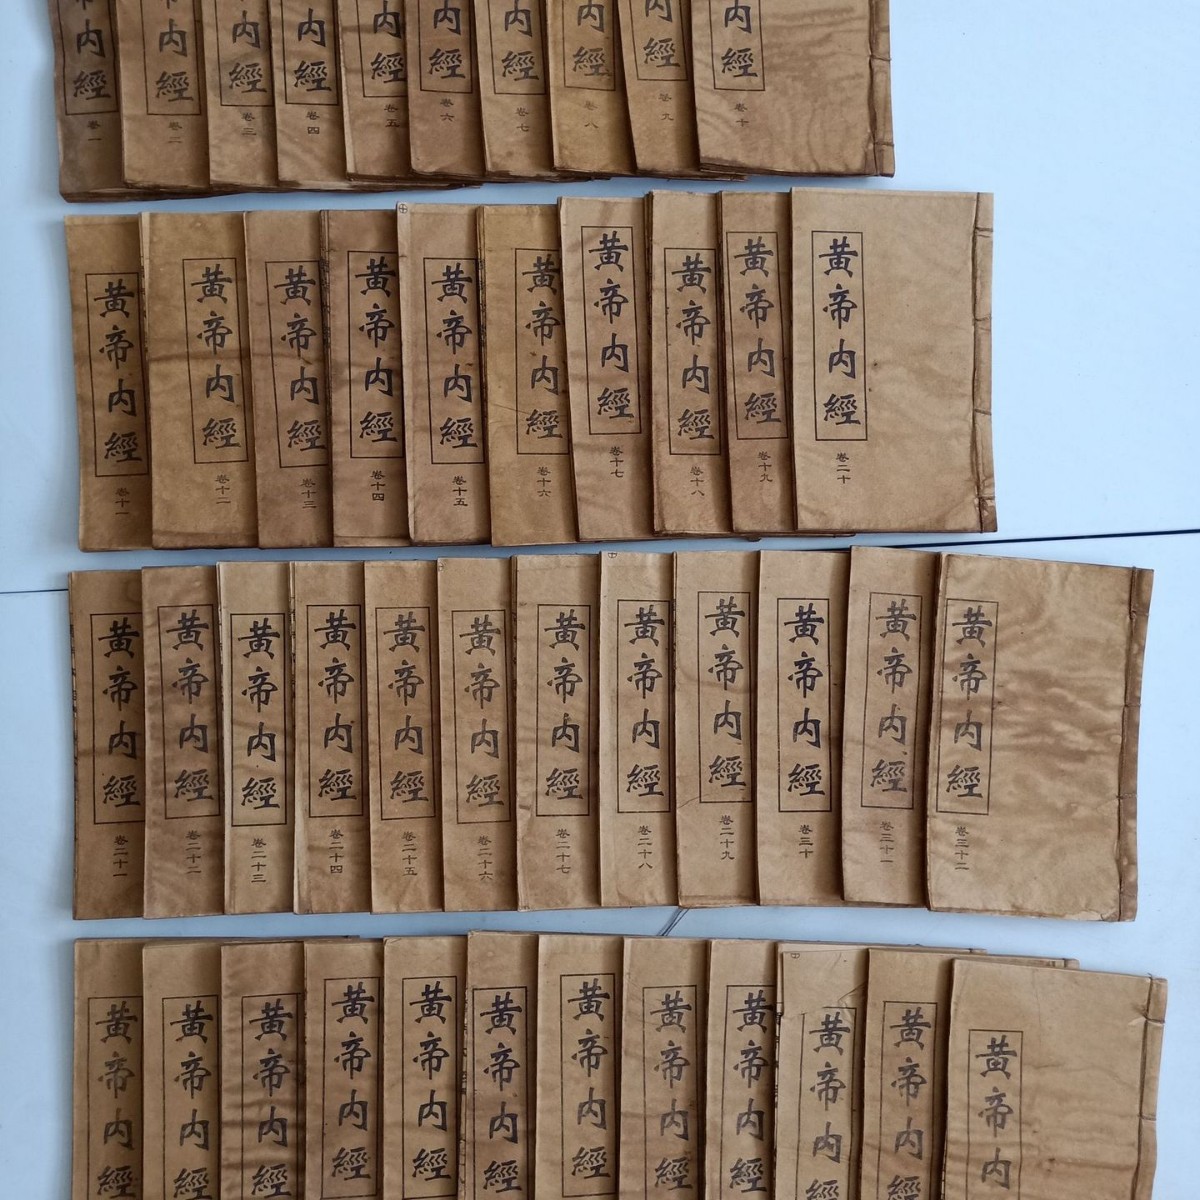 帝內經 卷一
內經 卷二
內經 卷三
內經 卷四
內經 卷五
內經 卷六
內經 卷七
內經 卷八
帝內經 卷九
帝內經 卷十
黃帝內經 卷十一
黃帝內經 卷十二
黃帝內經 卷十三
黃帝內經 卷十四
黃帝內經 卷十五
黃帝內經 卷十六
黃帝內經 卷十七
黃帝內經 卷十八
黃帝內經 卷十九
黃帝內經 卷二十
黃帝內經 卷二十一
黃帝內經 卷二十二
黃帝內經 卷二十三
黃帝內經 卷二十四
黃帝內經 卷二十五
黃帝內經 卷二十六
黃帝內經 卷二十七
黃帝內經 卷二十八
黃帝內經 卷二十九
黃帝內經 卷三十
黃帝內經 卷三十一
黃帝內經 卷三十二
黃帝內經
黃帝內經
黃帝內經
黃帝內經
黃帝內經
黃帝內經
黃帝內經
黃帝內經
黃帝內經
黃帝內經
黃帝內經
黃帝內